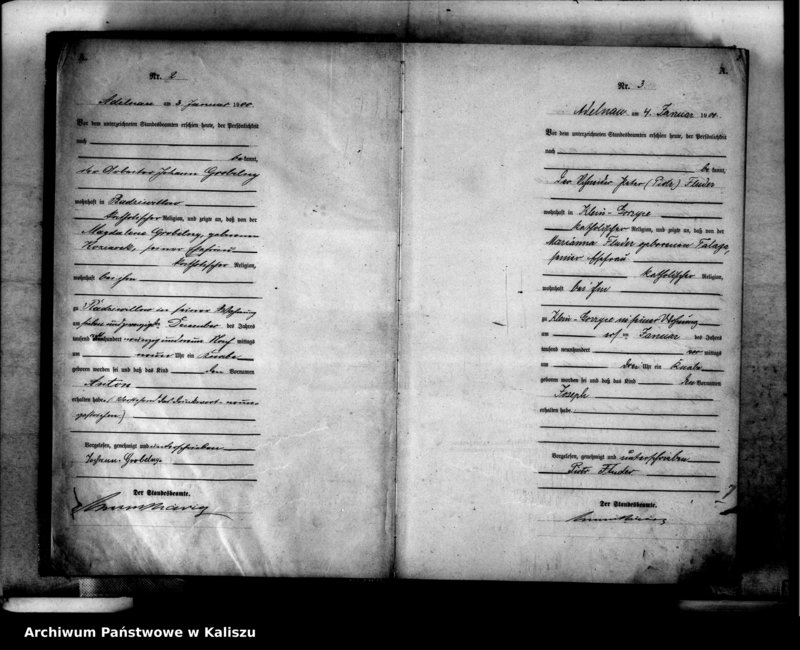 A.
Nr. 2
Adelnau am 3. Januar 1900.
Vor dem unterzeichneten Standesbeamten erschien heute, der Persönlichkeit
nach
bekannt,
der Arbeiter Johann Grobelny
wohnhaft in
katholischer Religion, und zeigte an, daß von der
Magdalena Grobelny, geborenen
seiner Ehefrau
katholischer Religion,
wohnhaft bei ihm
zu in seiner Wohnung
am sieben und zwanzigsten Dezember des Jahres
tausend hundert neunzig und neun Nach mittags
um neun Uhr ein Knabe
geboren worden sei und daß das Kind den Vornamen
Anton
erhalten habe.
Vorgelesen, genehmigt und unterschrieben
Johann Grobelny
Der Standesbeamte.
A.
Nr. 3
Adelnau am 4. Januar 190
Vor dem unterzeichneten Standesbeamten erschien heute, der Persönlichkeit
nach
bekannt,
der Schneider Peter (Piotr) Fluder
wohnhaft in Klein-Gorzyce
katholischer Religion, und zeigte an, daß von der
Marianna Fluder geborenen
seiner Ehefrau
katholischer Religion,
wohnhaft bei ihm
zu Klein-Gorzyce in seiner Wohnung
am ersten Januar des Jahres
tausend neunhundert vor mittags
um drei Uhr ein Knabe
geboren worden sei und daß das Kind den Vornamen
Joseph
erhalten habe.
Vorgelesen, genehmigt und unterschrieben
Piotr Fluder
Der Standesbeamte.
Archiwum Państwowe w Kaliszu